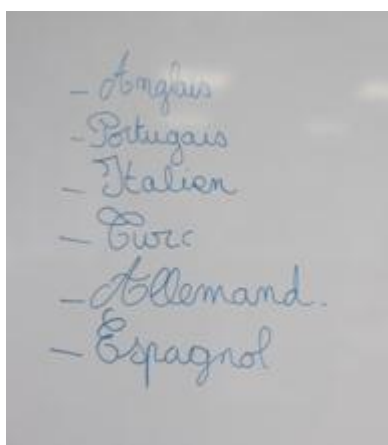 - Anglais
- Portugais
- Italien
- Turc
- Allemand.
- Espagnol